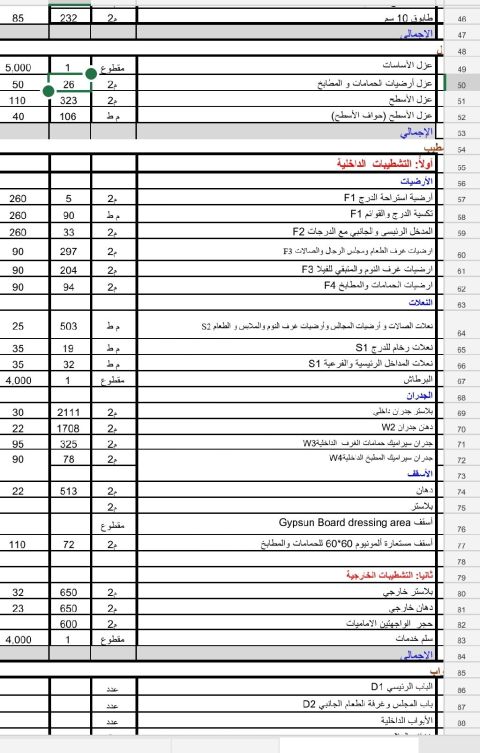 طابوق 10 سم م2 232 85 46
الإجمالي 47
48
عزل الأساسات مقطوع 1 5,000 49
عزل أرضيات الحمامات و المطابخ م2 26 50 50
عزل الأسطح م2 323 110 51
عزل الأسطح (حواف الأسطح) م ط 106 40 52
الإجمالي 53
54
أولاً: التشطيبات الداخلية 55
الأرضيات 56
أرضية استراحة الدرج F1 م2 5 260 57
تكسية الدرج والقوائم F1 م ط 90 260 58
المدخل الرئيسى والجانبي مع الدرجات F2 م2 33 260 59
ارضيات غرف الطعام ومجلس الرجال والصالات F3 م2 297 90 60
ارضيات غرف النوم والمتبقي للفيلا F3 م2 204 90 61
ارضيات الحمامات والمطابخ F4 م2 94 90 62
النعلات 63
نعلات الصالات و أرضيات المجالس وأرضيات غرف النوم والملابس و الطعام S2 م ط 503 25 64
نعلات رخام للدرج S1 م ط 19 35 65
نعلات المداخل الرئيسية والفرعية S1 م ط 32 35 66
البرطاش مقطوع 1 4,000 67
الجدران 68
بلاستر جدران داخلي م2 2111 30 69
دهان جدران W2 م2 1708 22 70
جدران سيراميك حمامات الغرف الداخلية W3 م2 325 95 71
جدران سيراميك المطبخ الداخلية W4 م2 78 90 72
الأسقف 73
دهان م2 513 22 74
بلاستر م2 75
أسقف Gypsun Board dressing area مقطوع 76
أسقف مستعارة ألمونيوم 60*60 للحمامات والمطابخ م2 72 110 77
78
ثانيا: التشطيبات الخارجية 79
بلاستر خارجي م2 650 32 80
دهان خارجي م2 650 23 81
حجر الواجهتين الاماميات م2 600 82
سلم خدمات مقطوع 1 4,000 83
الإجمالي 84
85
الباب الرئيسي D1 عدد 86
باب المجلس وغرفة الطعام الجانبي D2 عدد 87
الأبواب الداخلية عدد 88